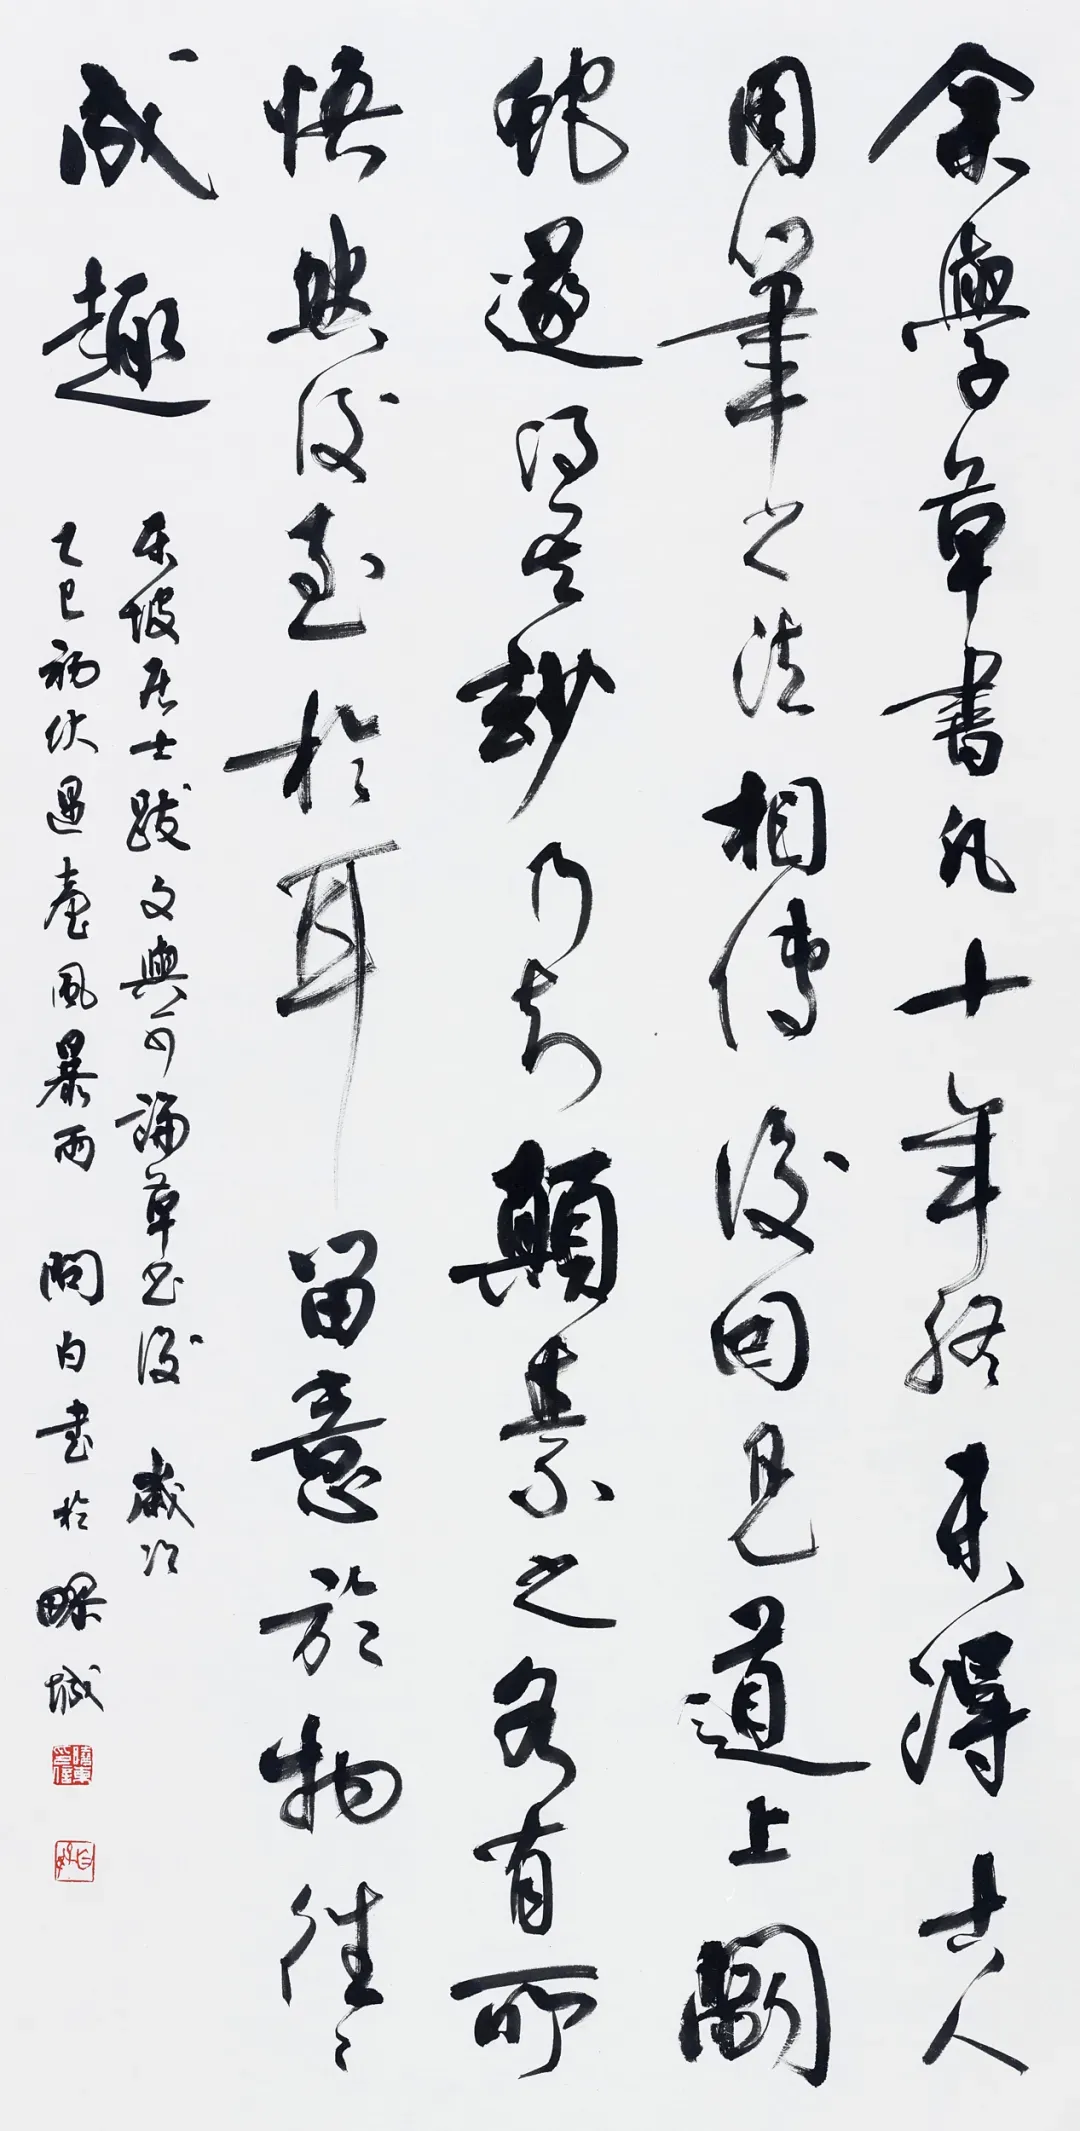 余學草書凡十年終未得古人
用筆之法相傳後因見道上鬭
蛇遂得其玅乃知顛素之各有所
悟然後至於耳留意於物往〻
成趣
東坡居士跋文與可論草書後 歲次
乙巳初伏遇臺風暴雨 問白書於疁城